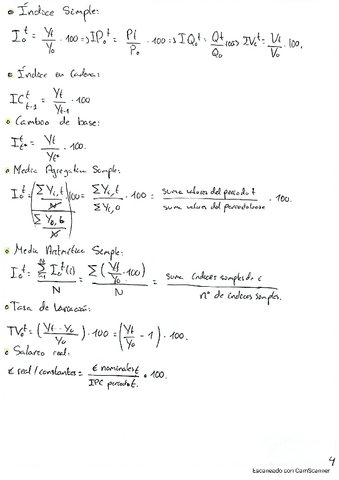 • Índice Simple:
I₀ᵗ = Yt/Y₀ · 100 => IP₀ᵗ = Pt/P₀ · 100 => IQ₀ᵗ = Qt/Q₀ · 100 => IV₀ᵗ = Vt/V₀ · 100.
• Índice en Cadena:
ICᵗₜ₋₁ = Yt/Yt-1 · 100
• Cambio de base:
Iᵗₜ* = Yt/Yt* · 100.
• Media Agregativa Simple:
I₀ᵗ = (ΣYi,t/N / ΣY₀,b/N) · 100 = ΣYi,t/ΣYi,0 · 100 = suma valores del periodo t/suma valores del periodo base · 100.
• Media Aritmética Simple:
I₀ᵗ = Σ I₀ᵗ(i)/N = Σ(Yt/Y₀ · 100)/N = suma índices simples de i/nº de índices simples.
• Tasa de Variación:
TV₀ᵗ = (Yt - Y₀/Y₀) · 100 = (Yt/Y₀ - 1) · 100.
• Salario real:
€ real/constantes = € nominales t/IPC periodo t · 100.
4
Escaneado con CamScanner